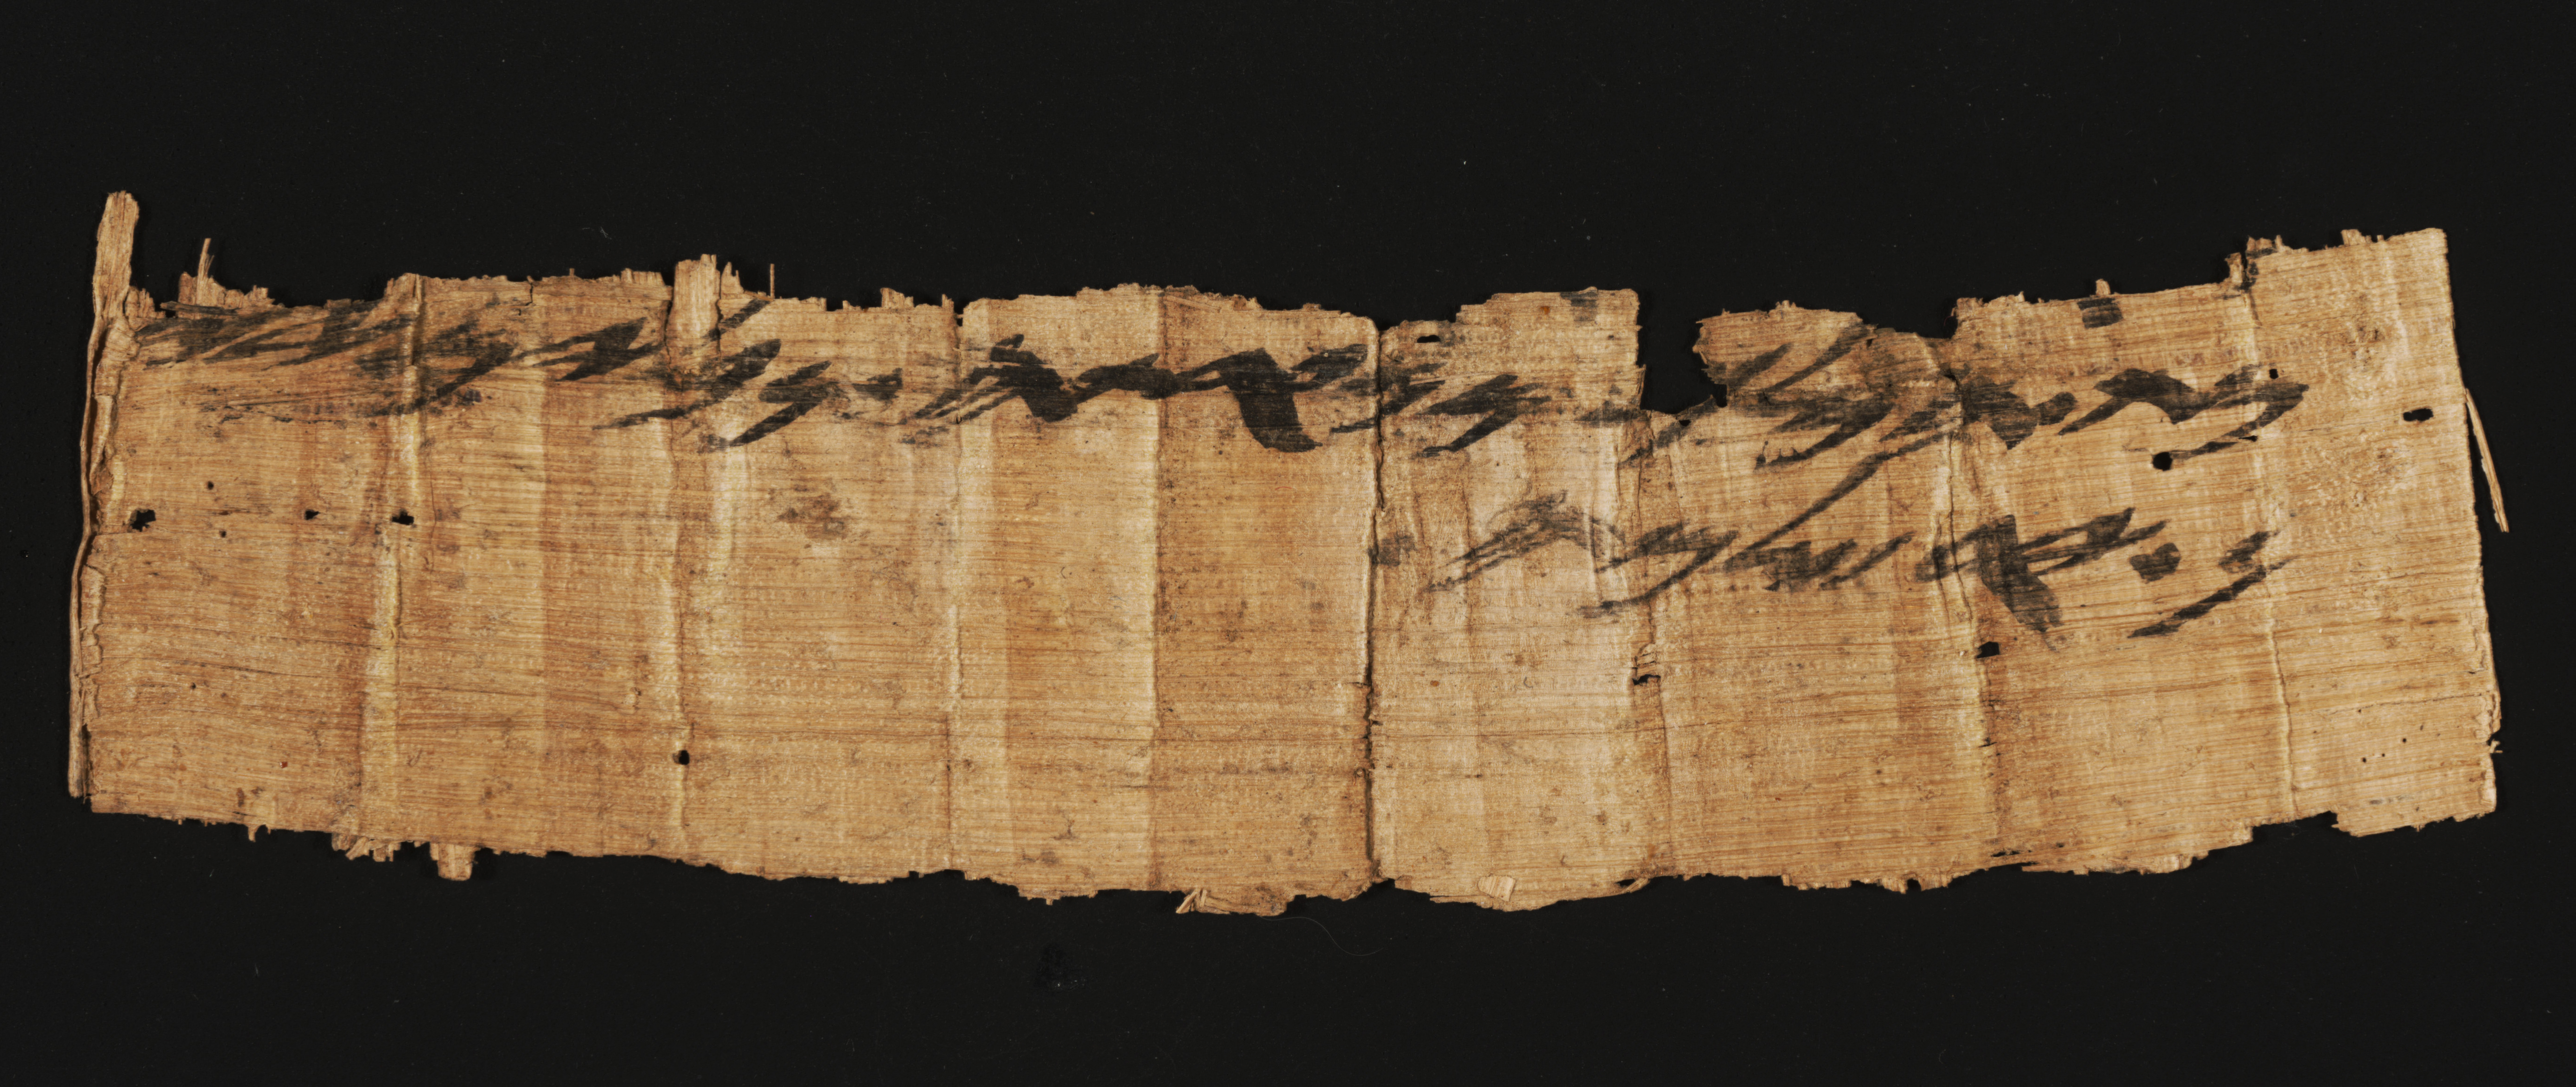 מת.המלך.מנערתה.נבלים.יי
ן.ירשלמה.